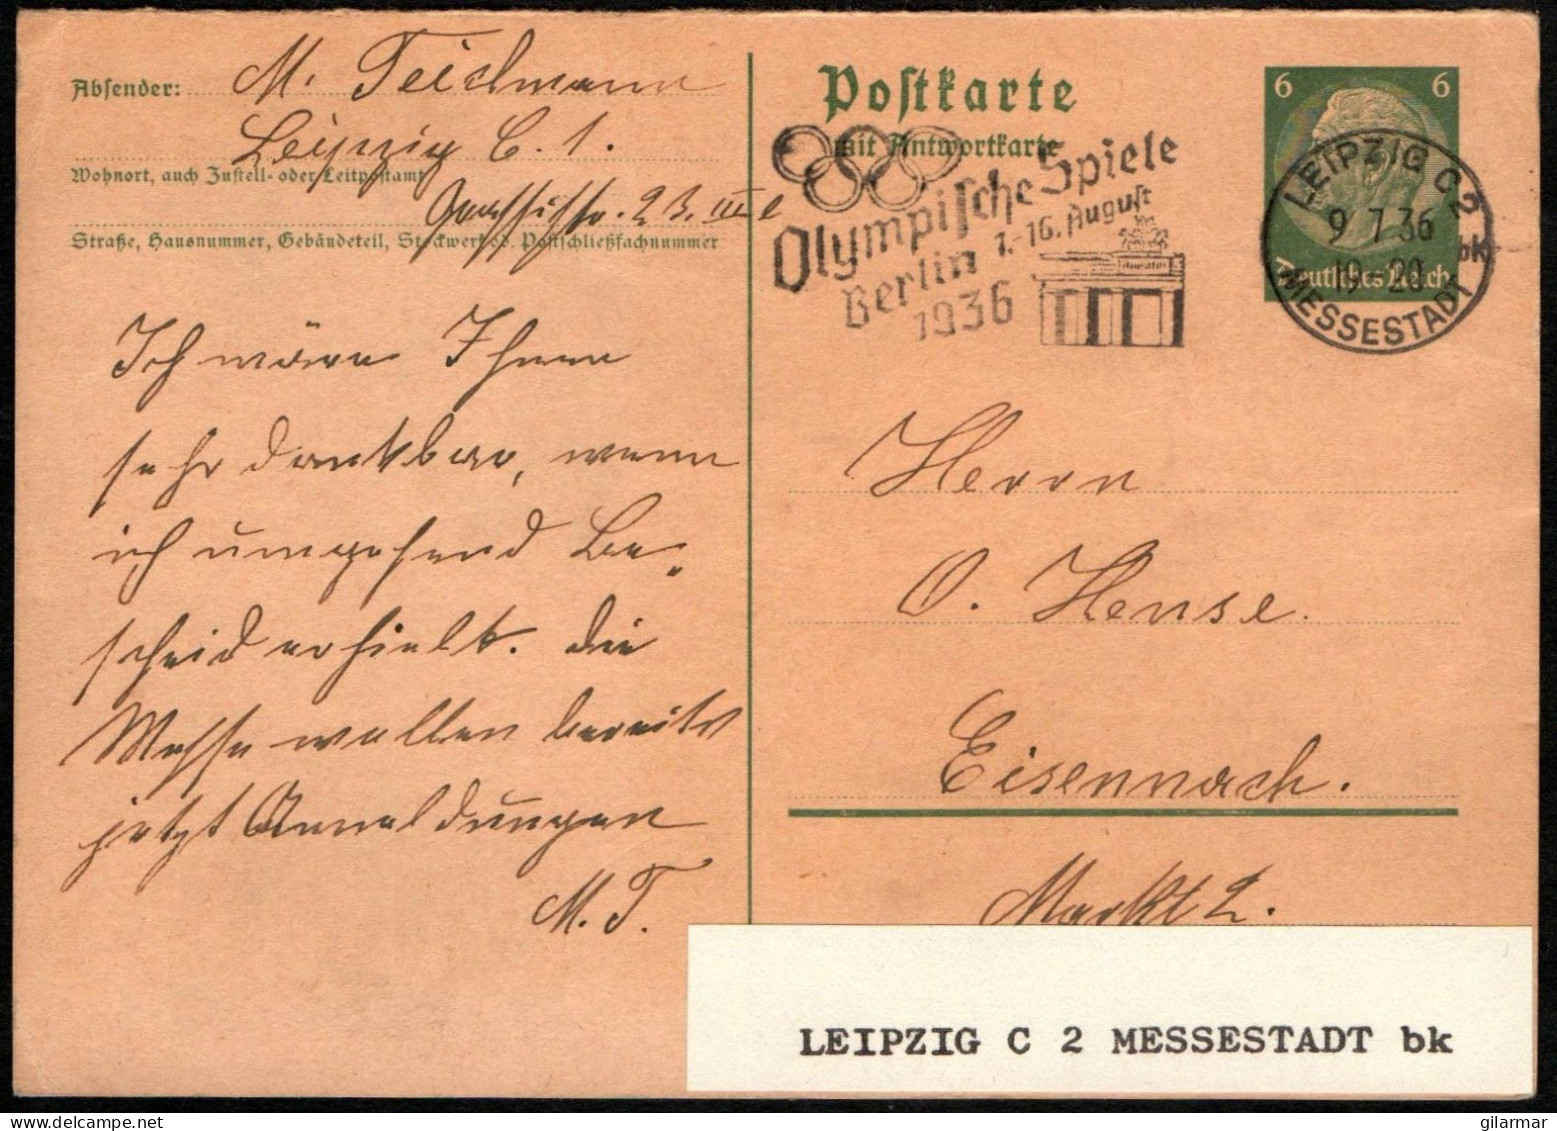 Absender: M. Teichmann
Leipzig C. 1.
Wohnort, auch Zustell- oder Leitpostamt
23. III l
Straße, Hausnummer, Gebäudeteil, Stockwerk od. Postschließfachnummer
Ich wäre Ihnen
sehr dankbar, wenn
ich umgehend Be-
scheid erhielt. Die
Messe wollen bereits
jetzt Anmeldungen
M. T.
Postkarte
mit Antwortkarte
Olympische Spiele
Berlin 1.-16. August
1936
6 6
Deutsches Reich
LEIPZIG C 2
9 7 36
19-20
bk
MESSESTADT
Herrn
O. Hense.
Eisennach.
Markt 2.
LEIPZIG C 2 MESSESTADT bk
gilarmar